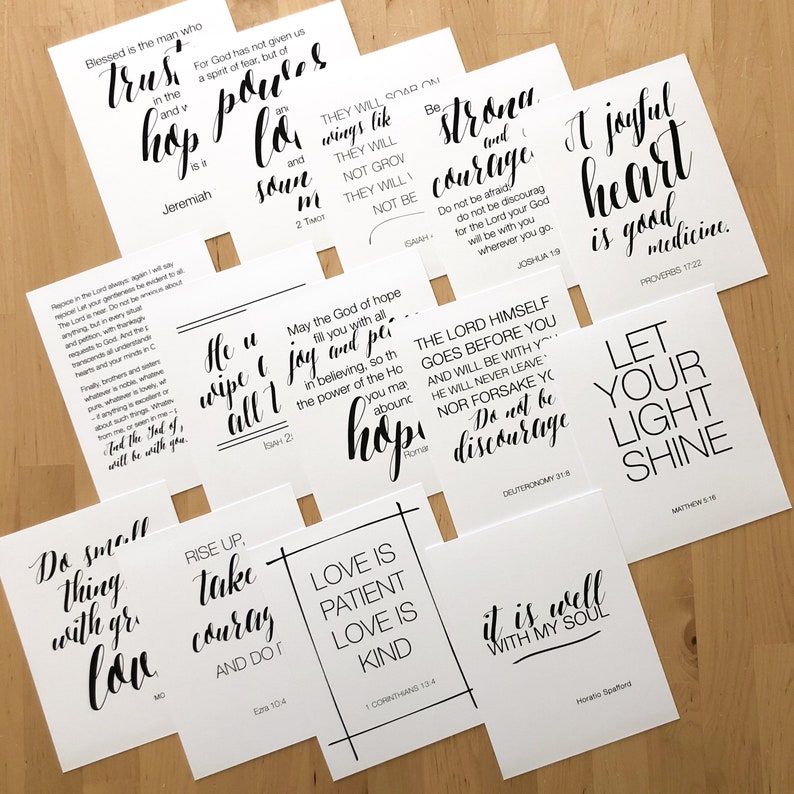 Blessed is the man who
trust
in the
and w
hop
is i
Jeremiah
For God has not given us
a spirit of fear, but of
power
and
lo
and
soun
m
2 TIMOT
THEY WILL SOAR ON
wings lik
THEY WILL
NOT GROW
THEY WILL
NOT BE
ISAIAH 4
Be
strong
and
courage
Do not be afraid;
do not be discourag
for the Lord your God
will be with you
wherever you go.
JOSHUA 1:9
A joyful
heart
is good
medicine.
PROVERBS 17:22
Rejoice in the Lord always: again I will say
rejoice! Let your gentleness be evident to all.
The Lord is near. Do not be anxious about
anything, but in every situat
and petition, with thanksgivi
requests to God. And the p
transcends all understandin
hearts and your minds in C
Finally, brothers and sisters
whatever is noble, whateve
pure, whatever is lovely, wh
– if anything is excellent or
about such things. Whatev
from me, or seen in me – p
And the God of
will be with you.
He w
wipe a
all t
ISIAH 25
May the God of hope
fill you with all
joy and peac
in believing, so th
the power of the Ho
you may
aboun
hope
Roman
THE LORD HIMSELF
GOES BEFORE YOU
AND WILL BE WITH YO
HE WILL NEVER LEAVE
NOR FORSAKE YO
Do not be
discourage
DEUTERONOMY 31:8
LET
YOUR
LIGHT
SHINE
MATTHEW 5:16
Do small
thing
with gre
love
MO
RISE UP,
take
courag
AND DO I
Ezra 10:4
LOVE IS
PATIENT
LOVE IS
KIND
1 CORINTHIANS 13:4
it is well
WITH MY SOUL
Horatio Spafford